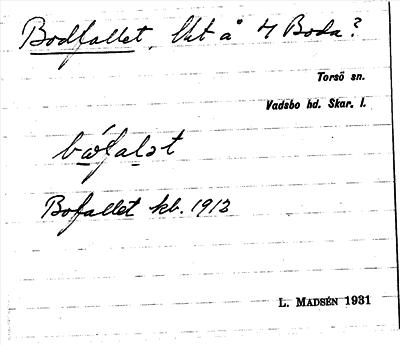 Bodfallet, lht å 4 Boda?
Torsö sn.
Vadsbo hd. Skar. l.
bo̱fala̱t
Bofallet kb. 1913
L. MADSÉN 1931